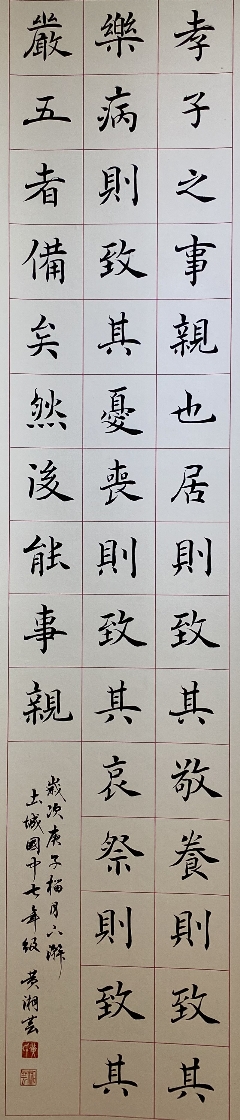 孝子之事親也居則致其敬養則致其
樂病則致其憂喪則致其哀祭則致其
嚴五者備矣然後能事親
歲次庚子榴月六澣
土城國中七年級 黃湘芸